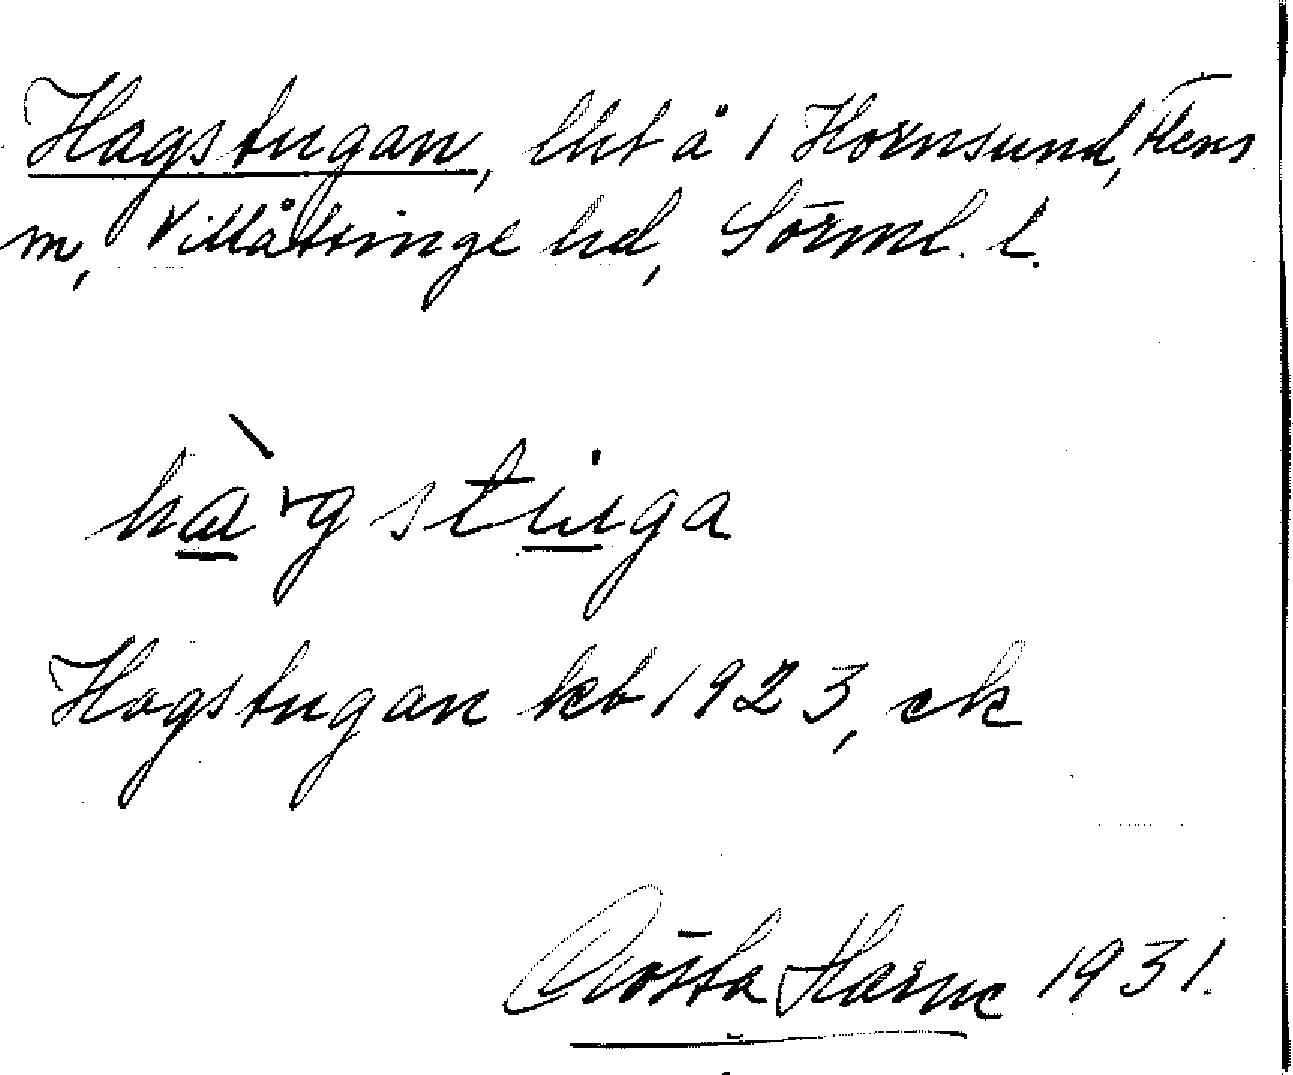 Hagstugan, lht å 1 Hornsund, Flens
sn, Villåttinge hd, Sörml. l.
hàgstuga
Hagstugan kb 1923, ek
Gösta Harne 1931.